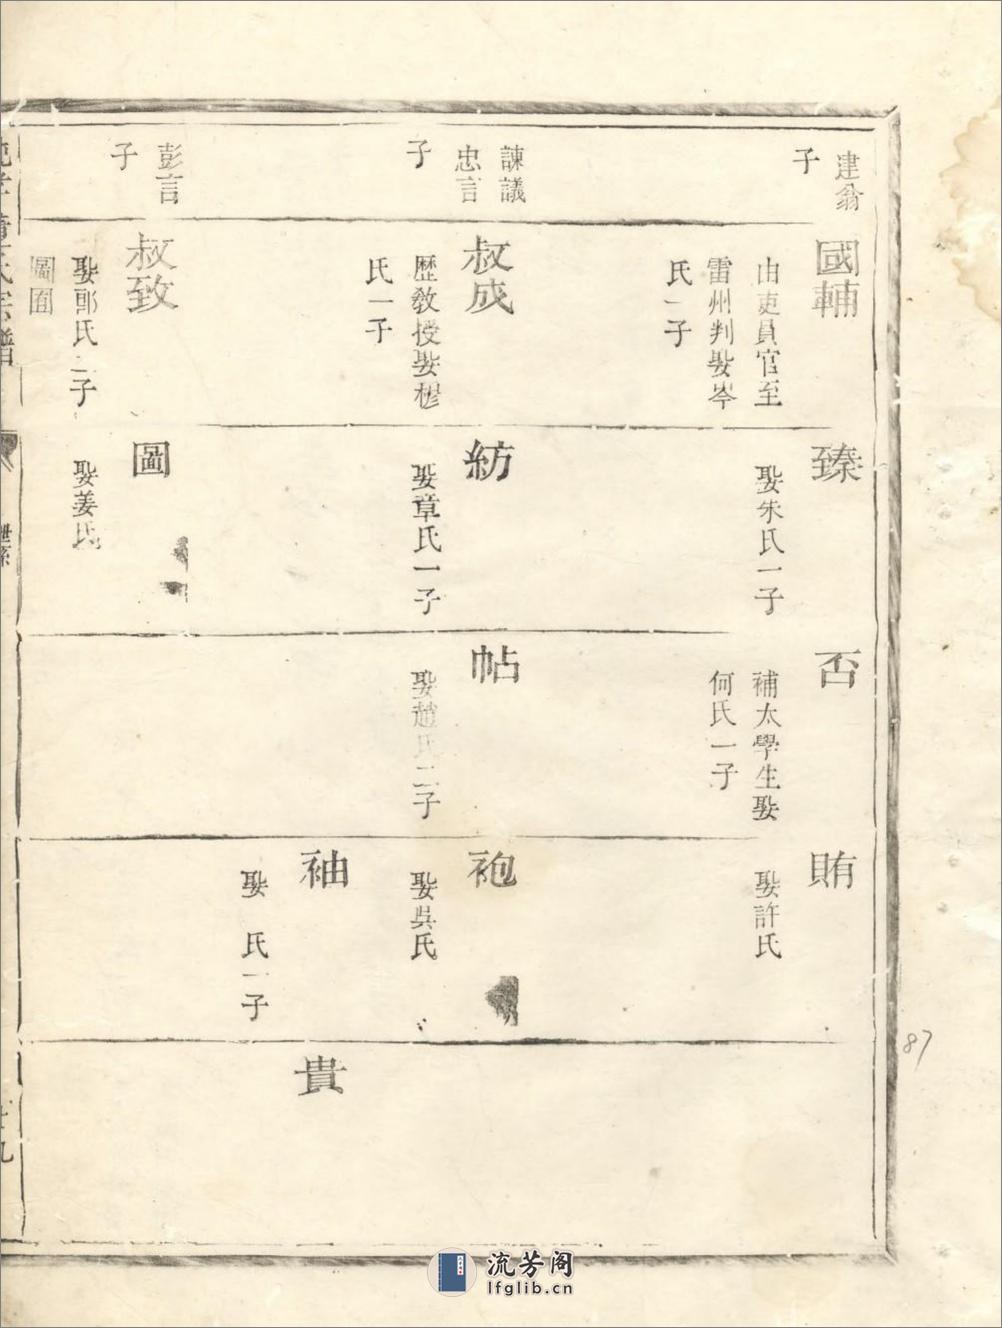 建翁
子
國輔
由吏員官至
雷州判娶岑
氏一子
臻
娶朱氏一子
否
補太學生娶
何氏一子
賄
娶許氏
諫議
忠言
子
叔成
歷教授娶
氏一子
紡
娶章氏一子
帖
娶趙氏二子
袍
娶吳氏
袖
娶 氏一子
貴
彭言
子
叔致
娶郭氏二子
圖
圖
娶姜氏
氏宗譜
世系
九
87
流芳阁
lfglib.cn